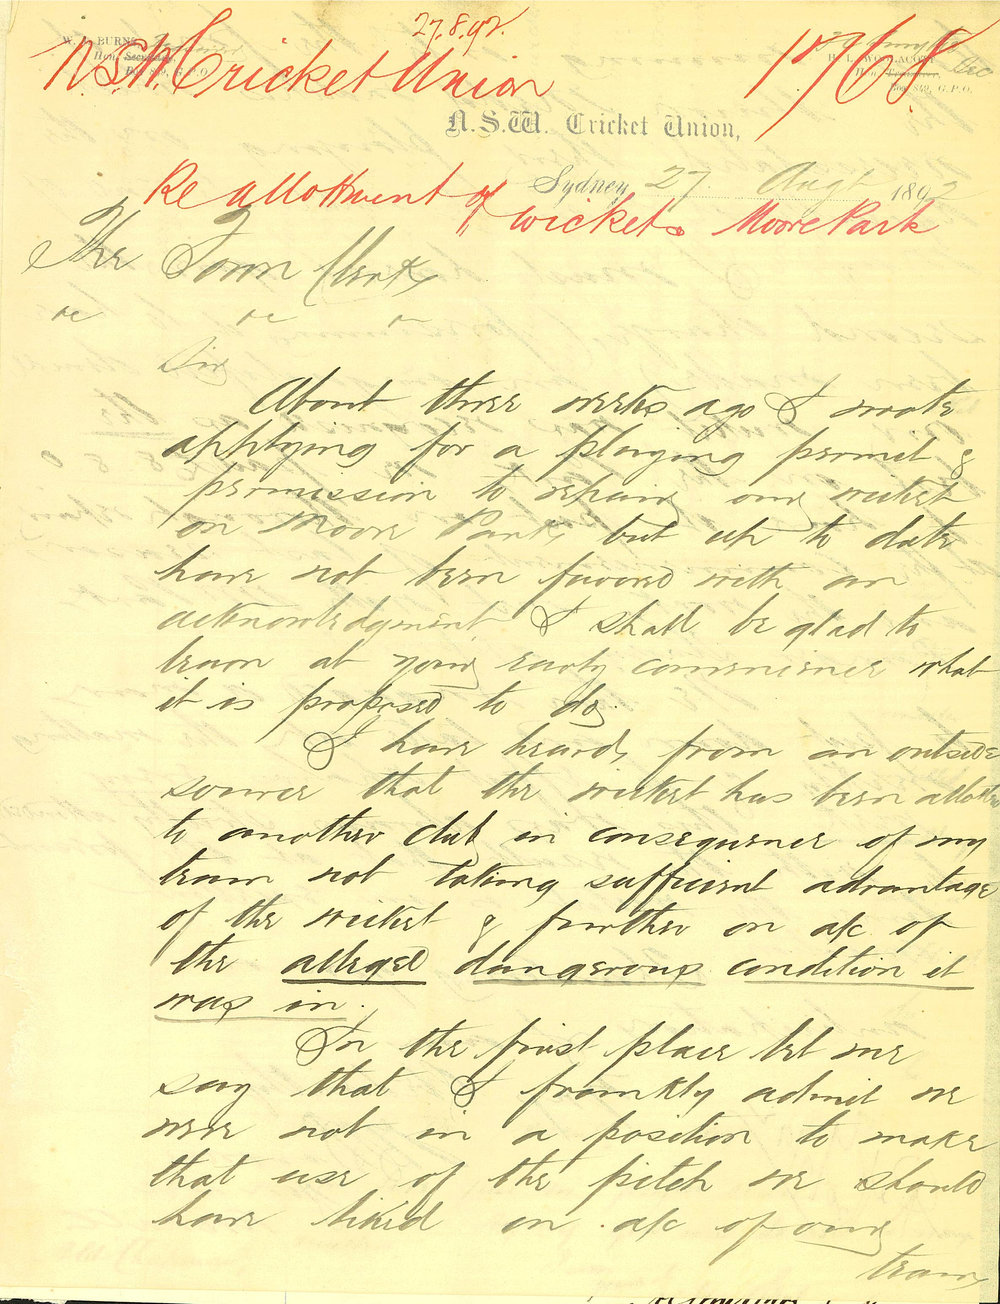 27.8.92.
N.S.W. Cricket Union
1765
W. J. BURNS
Hon. Secretary,
Box 849, G.P.O.
Hon. Treasurer,
Box 849, G.P.O.
N.S.W. Cricket Union,
Sydney, 27 Augt 1892
Re allottment of wickets Moore Park
The Town Clerk
Sir,
About three weeks ago I wrote
applying for a playing permit &
permission to repair our wicket
on Moore Park, but up to date
have not been favored with an
acknowledgment. I shall be glad to
learn at your early convenience what
it is proposed to do.
I have heard, from an outside
source that the wicket has been allotted
to another club in consequence of my
team not taking sufficient advantage
of the wicket & further on a/c of
the alleged dangerous condition it
was in.
In the first place let me
say that I frankly admit we
were not in a position to make
that use of the pitch we should
have liked on a/c of our
team